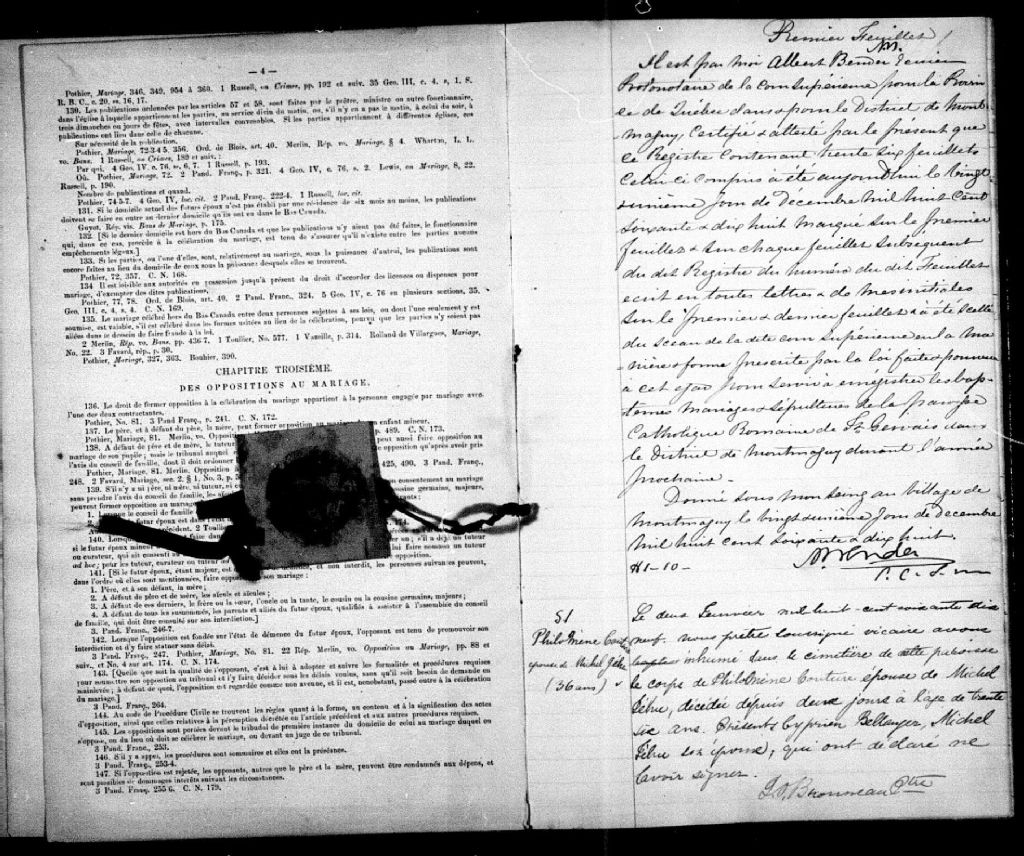 — 4 —
Pothier, Mariage, 346, 349, 354 à 360. 1 Russell, on Crimes, pp. 192 et suiv. 35 Geo. III, c. 4, s. 1. S.
R. B. C., c. 20, ss. 16, 17.
130. Les publications ordonnées par les articles 57 et 58, sont faites par le prêtre, ministre ou autre fonctionnaire,
dans l'église à laquelle appartiennent les parties, au service divin du matin, ou, s'il n'y en a pas le matin, à celui du soir, à
trois dimanches ou jours de fêtes, avec intervalles convenables. Si les parties appartiennent à différentes églises, ces
publications ont lieu dans celle de chacune.
Sur nécessité de la publication.
Pothier, Mariage, 72-3-4-5, 356. Ord. de Blois, art. 40. Merlin, Rép. vo. Mariage, § 4. Wharton, L. L.
vo. Bans. 1 Russell, on Crimes, 189 et suiv. :
Par qui. 4 Geo. IV, c. 76, ss. 6, 7. 1 Russell, p. 193.
Où. Pothier, Mariage, 72. 2 Pand. Franç. p. 321. 4 Geo. IV, c. 76, s. 2. Lewis, on Mariage, 8, 22.
Russell, p. 190.
Nombre de publications et quand.
Pothier, 74-5-7. 4 Geo. IV, loc. cit. 2 Pand. Franç. 222-4. 1 Russell, loc. cit.
131. Si le domicile actuel des futurs époux n'est pas établi par une résidence de six mois au moins, les publications
doivent se faire en outre au dernier domicile qu'ils ont eu dans le Bas Canada.
Guyot, Rép. vis. Bans de Mariage, p. 175.
132. [Si le dernier domicile est hors du Bas Canada et que les publications n'y aient pas été faites, le fonctionnaire
qui, dans ce cas, procède à la célébration du mariage, est tenu de s'assurer qu'il n'existe entre les parties aucuns
empêchements légaux.]
133. Si les parties, ou l'une d'elles, sont, relativement au mariage, sous la puissance d'autrui, les publications sont
encore faites au lieu du domicile de ceux sous la puissance desquels elles se trouvent.
Pothier, 72, 357. C. N. 168.
134 Il est loisible aux autorités en possession jusqu'à présent du droit d'accorder des licences ou dispenses pour
mariage, d'exempter des dites publications.
Pothier, 77, 78. Ord. de Blois, art. 40. 2 Pand. Franc., 324. 5 Geo. IV, c. 76 en plusieurs sections, 35.
Geo. III, c. 4, s. 4. C. N. 169.
135. Le mariage célébré hors du Bas Canada entre deux personnes sujettes à ses lois, ou dont l'une seulement y est
soumise, est valable, s'il est célébré dans les formes usitées au lieu de la célébration, pourvu que les parties n'y soient pas
allées dans le dessein de faire fraude à la loi.
2 Merlin, Rép. vo. Bans. pp. 436-7. 1 Toullier, No. 577. 1 Vazeille, p. 314. Rolland de Villargues, Mariage,
No. 22. 3 Favard, rép., p. 30.
Pothier, Mariage, 327, 363. Bouhier, 390.
CHAPITRE TROISIÈME.
DES OPPOSITIONS AU MARIAGE.
136. Le droit de former opposition à la célébration du mariage appartient à la personne engagée par mariage avec
l'une des deux contractantes.
Pothier, No. 81. 3 Pand Franç., p. 241. C. N. 172.
137. Le père, et à défaut du père, la mère, peut former opposition au mariage enfant mineur.
Pothier, Mariage, 81. Merlin, vo. Opposition p. 489. C. N. 173.
138. A défaut de père et de mère, le tuteur peut aussi faire opposition au
mariage de son pupille ; mais le tribunal auquel qu'après avoir pris
l'avis du conseil de famille, dont il doit ordonner
Pothier, Mariage, 81. Merlin, Opposition 425, 490, 3 Pand. Franç.,
248. 2 Favard, Mariage, sec. 2, § 1, No. 3, p.
139. S'il n'y a ni père, ni mère, ni tuteur, consentement au mariage
sans prendre l'avis du conseil de famille, les germains, majeurs,
peuvent former opposition au mariage
1. Lorsque le conseil de famille
2. futur époux est dans
précédent. 2 Toullier 174.
140. Lorsque faire dans
si le futur époux mineur s'il a déjà un tuteur
ou curateur, qui ait consenti au lui faire nommer un tuteur
ad hoc ; pour les tuteur, curateur ou tuteur opposition.
141. [Si le futur époux, étant majeur, est et non interdit, les personnes suivantes peuvent,
dans l'ordre où elles sont mentionnées, faire opposition son mariage :
1. Père, et à son défaut, la mère ;
2. A défaut de père et de mère, les aïeuls et aïeules ;
3. A défaut de ces derniers, le frère ou la sœur, l'oncle ou la tante, le cousin ou la cousine germains, majeurs ;
4. A défaut de tous les susnommés, les parents et alliés du futur époux, qualifiés à assister à l'assemblée du conseil
de famille, qui doit être consulté sur son interdiction.]
3. Pand. Franç., 246-7.
142. Lorsque l'opposition est fondée sur l'état de démence du futur époux, l'opposant est tenu de promouvoir son
interdiction et d'y faire statuer sans délai.
3 Pand. Franç. 247. Pothier, Mariage, No. 81. 22 Rép. Merlin, vo. Opposition au Mariage, pp. 88 et
suiv., et No. 4 sur art. 174. C. N. 174.
143. [Quelle que soit la qualité de l'opposant, c'est à lui à adopter et suivre les formalités et procédures requises
pour soumettre son opposition au tribunal et l'y faire décider sous les délais voulus, sans qu'il soit besoin de demande en
mainlevée ; à défaut de quoi, l'opposition est regardée comme non avenue, et il est, nonobstant, passé outre à la célébration
du mariage.]
3 Pand. Franç., 264.
144. Au code de Procédure Civile se trouvent les règles quant à la forme, au contenu et à la signification des actes
d'opposition, ainsi que celles relatives à la péremption décrétée en l'article précédent et aux autres procédures requises.
145. Les oppositions sont portées devant le tribunal de première instance du domicile de celui au mariage duquel on
s'oppose, ou du lieu où doit se célébrer le mariage, ou devant un juge de ce tribunal.
3 Pand. Franç., 253.
146. S'il y a appel, les procédures sont sommaires et elles ont la préséance.
3 Pand. Franç., 253-4.
147. Si l'opposition est rejetée, les opposants, autres que le père et la mère, peuvent être condamnés aux dépens, et
sont passibles de dommages intérêts suivant les circonstances.
3 Pand. Franç. 255-6. C. N. 179.
Premier Feuillet
Il est par moi Albert Bender Ecuier
Protonotaire de la cour Supérieure pour la Provin-
ce de Québec dans & pour le District de Mont-
magny, Certifié & attesté par le présent que
ce Registre contenant trente six feuillets
celui ci compris a été aujourd'hui le Vingt
sixième Jour de Decembre Mil huit Cent
soixante & dix huit marqué sur le premier
feuillet & sur chaque feuillet subséquent
du dit Registre du numéro du dit Feuillet
ecrit en toutes lettres & de mes initiales
sur le premier & dernier feuillets & a été scellé
du sceau de la dite cour Supérieure en la Ma-
nière & forme prescrite par la loi faite & pourvue
à cet égard pour servir à enrégistrer les bap-
temes Mariages & Sépultures de la paroisse
Catholique Romaine de St Gervais dans
le District de Montmagny durant l'année
prochaine -
Donné sous mon seing au Village de
Montmagny le vingt sixième Jour de Decembre
Mil huit cent soixante & dix huit.
A Bender
P. C. S.
51
Philomène Couture
épouse de Michel
(36 ans)
Le deux Janvier mil huit-cent soixante dix
neuf, nous prêtre soussigné vicaire avons
inhumé dans le cimetière de cette paroisse
le corps de Philomène Couture épouse de Michel
décédée depuis deux jours à l'age de trente
six ans. Présents Cyprien Bellanger, Michel
son époux, qui ont déclaré ne
savoir signer.
Ptre